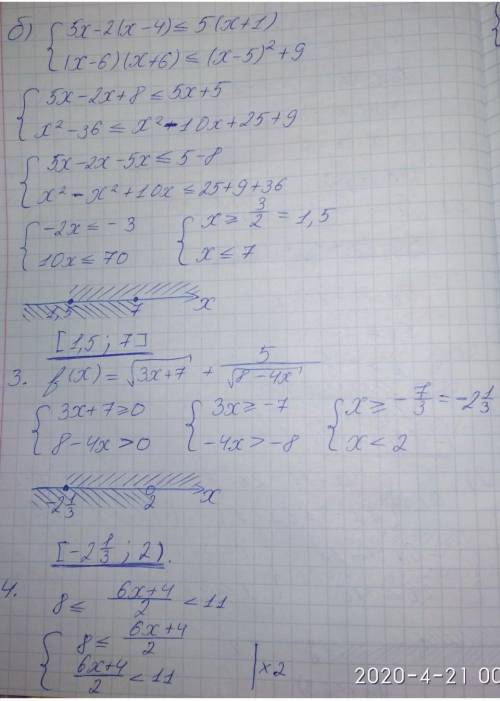 б) { 5x-2(x-4) ≤ 5(x+1)
(x-6)(x+6) ≤ (x-5)² + 9
{ 5x-2x+8 ≤ 5x+5
x²-36 ≤ x²-10x+25+9
{ 5x-2x-5x ≤ 5-8
x²-x²+10x ≤ 25+9+36
{ -2x ≤ -3 { x ≥ 3/2 = 1,5
10x ≤ 70 x ≤ 7
1,5 7 x
[1,5; 7]
3. f(x) = √(3x+7) + 5/√(8-4x)
{ 3x+7 ≥ 0 { 3x ≥ -7 { x ≥ -7/3 = -2 1/3
8-4x > 0 -4x > -8 x < 2
-2 1/3 2 x
[-2 1/3; 2).
4. 8 ≤ (6x+4)/2 < 11
{ 8 ≤ (6x+4)/2
(6x+4)/2 < 11 | ×2
2020-4-21 00